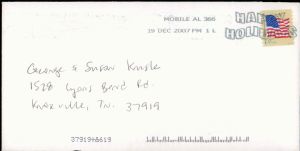 MOBILE AL 366
19 DEC 2007 PM 1 L
HAPPY
HOLIDAYS
George & Susan Krisle
1528 Lyons Bend Rd.
Knoxville, TN. 37919
3791948619